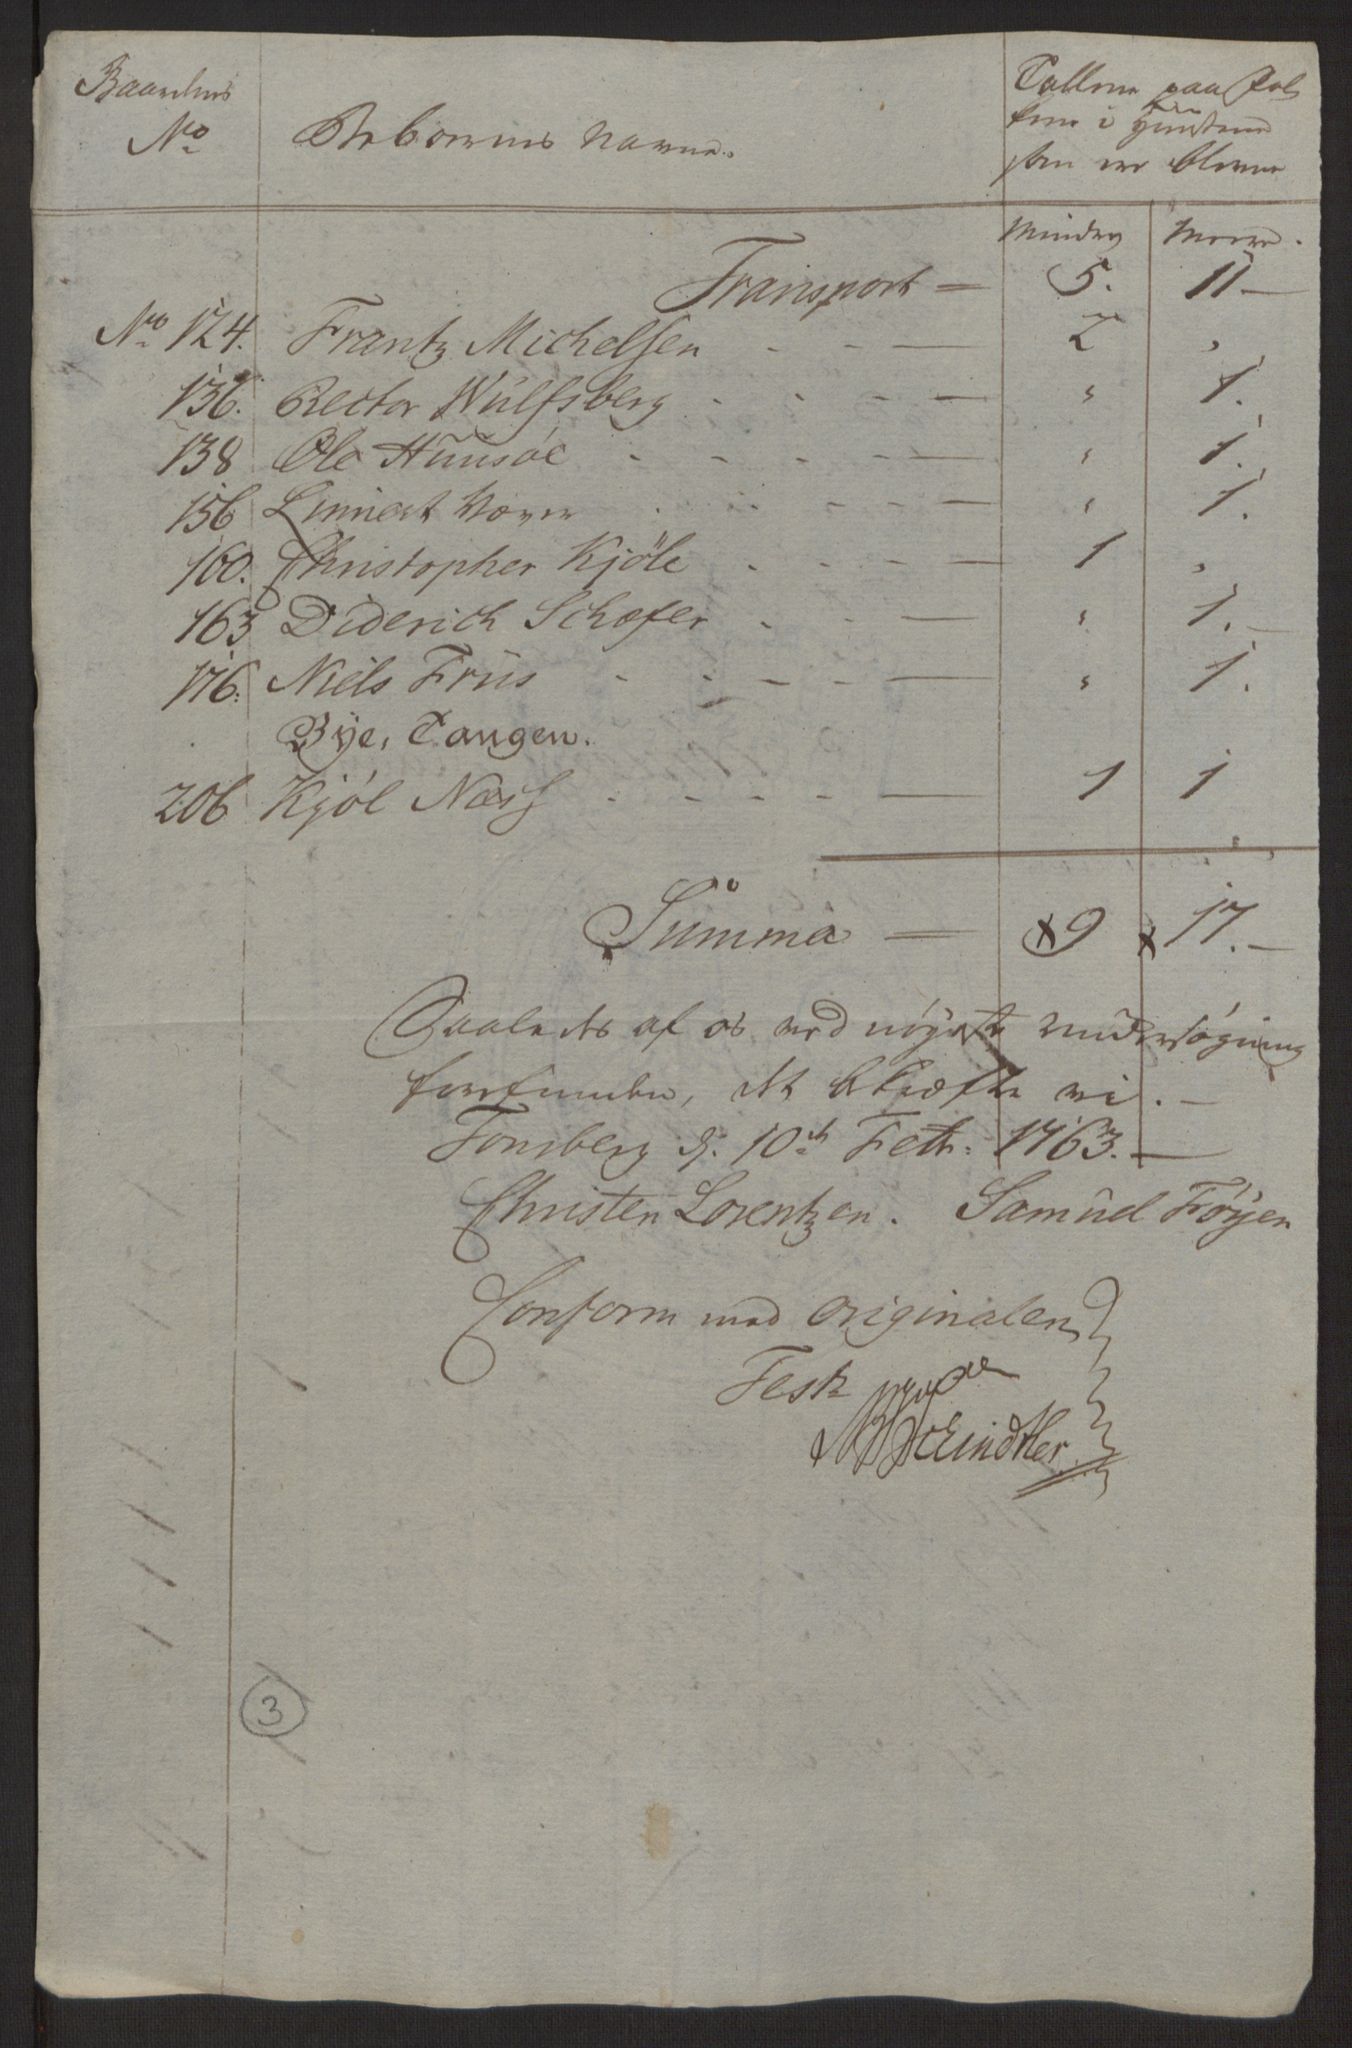 Gaardens
No
Beboernes Navne.
Tallene paa Fol
kene i Huusene
som ere blevne
Mindre Meere.
Transport — 5. 11 —
No 124. Frantz Michelsen - - — 2 "
136. Rector Wulfsberg - - - — " 1.
138 Ole Huusöe - - - - — " 1.
156 Linnert - - - — " 1.
160. Christopher Kjöle - - - — 1 "
163 Diderich Schæfer - - — " 1. —
176. Niels Friis - - - - — " 1.
Bye, Tangen.
206 Kjöl Næss - - - - — 1 1
Summa — x 9 x 17. —
Saaledes af os ved nöyeste undersögning
forefunden, det bekræfte vi. —
Tonsberg d. 10de Febr. 1763. —
Christen Lorentzen. Samuel Föyen
Conform med Originalen
Test
Schindtler
3